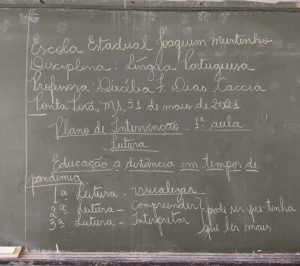 Escola Estadual Joaquim Murtinho
Disciplina: Língua Portuguesa
Professora: Dircélia F. Dias Caccia
Ponta Porã, MS, 31 de maio de 2021.
Plano de Intervenção - 1ª aula
Leitura
Educação a distância em tempos de
pandemia
1ª Leitura - visualizar
2ª Leitura - Compreender
3ª Leitura - Interpretar
pode ser que tenha
que ler mais.